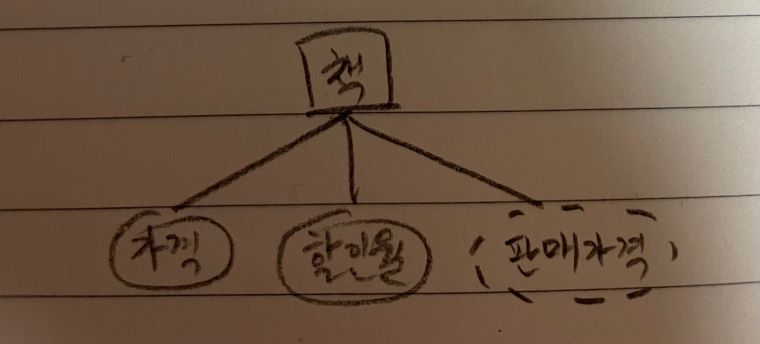 책
가격 할인율 판매가격